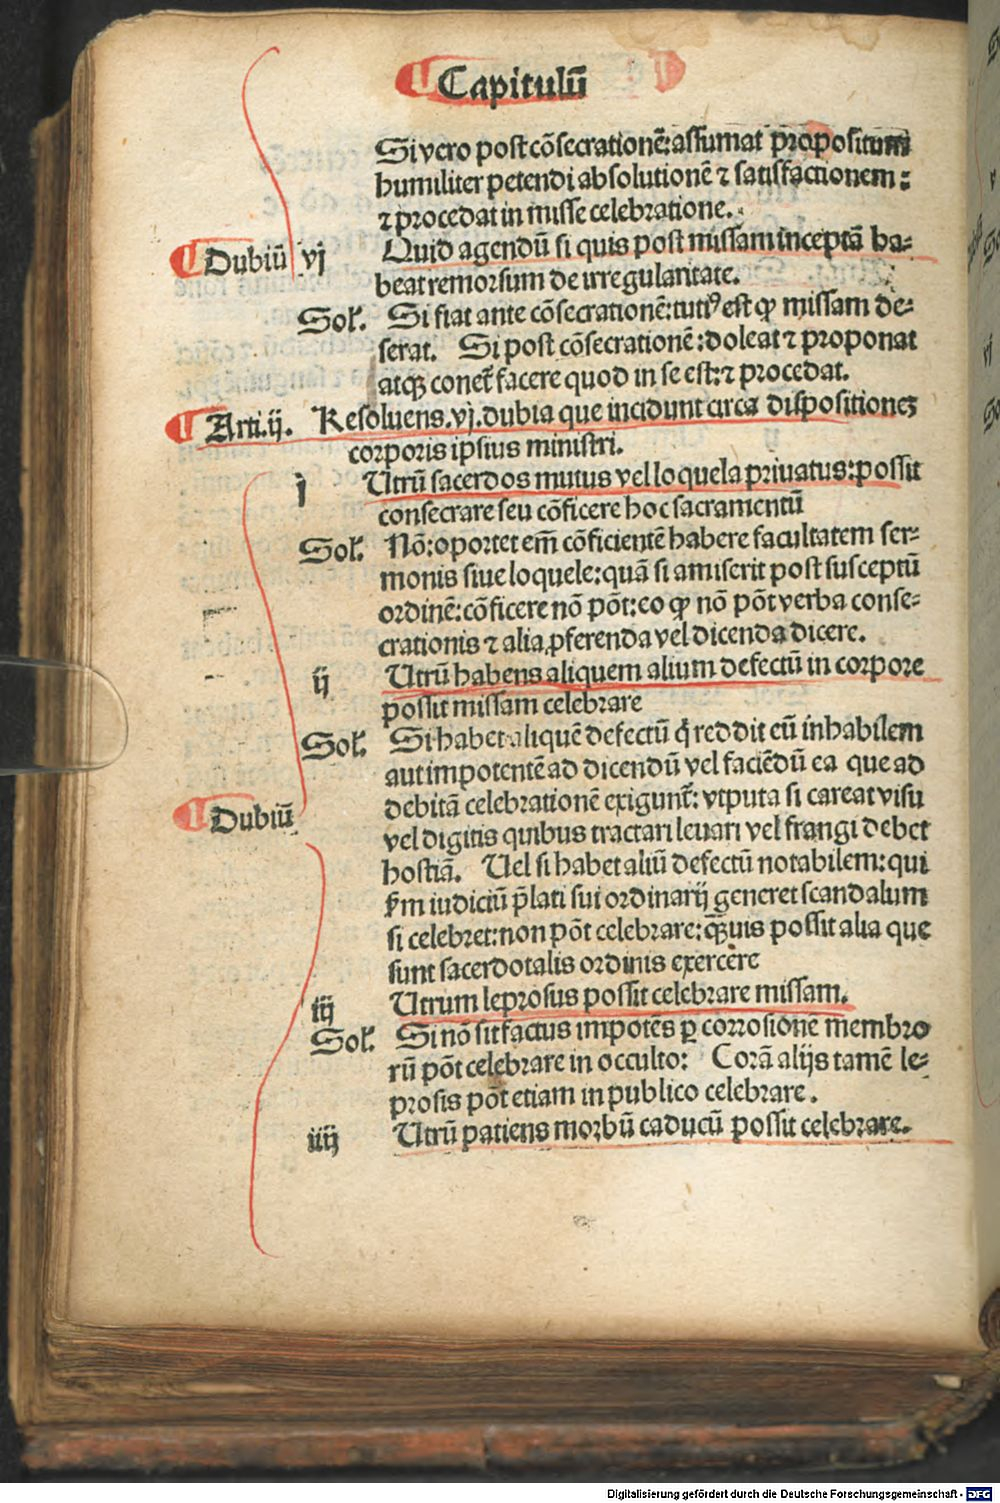 Capitulū
Si vero post cōsecrationē: assumat propositum
humiliter petendi absolutionē ⁊ satisfactionem:
⁊ procedat in misse celebratione.
Dubiū vj Quid agendū si quis post missam inceptā ha⸗
beat remorsum de irregularitate.
Sol̄. Si fiat ante cōsecrationē: tutiꝰ est ꝙ missam de⸗
serat. Si post cōsecrationē: doleat ⁊ proponat
atqꝫ conet̄ facere quod in se est: ⁊ procedat.
Arti.ij. Resoluens.vj.dubia que incidunt circa dispositiones
corporis ipsius ministri.
j Utrū sacerdos mutus vel loquela priuatus: possit
consecrare seu cōficere hoc sacramentū
Sol̄. Nō: oportet em̄ cōficientē habere facultatem ser⸗
monis siue loquele: quā si amiserit post susceptū
ordinē: cōficere nō pōt: eo ꝙ nō pōt verba conse⸗
crationis ⁊ alia ꝓferenda vel dicenda dicere.
ij Utrū habens aliquem alium defectū in corpore
possit missam celebrare
Sol̄. Si habet aliquē defectū q̇ reddit eū inhabilem
aut impotentē ad dicendū vel faciēdū ea que ad
debitā celebrationē exigunt̄: vtputa si careat visu
Dubiū
vel digitis quibus tractari leuari vel frangi debet
hostiā. Uel si habet aliū defectū notabilem: qui
ẜm iudiciū p̄lati sui ordinarij generet scandalum
si celebret: non pōt celebrare: qꝫuis possit alia que
sunt sacerdotalis ordinis exercere
iij Utrum leprosus possit celebrare missam.
Sol̄. Si nō sit factus impotēs ꝑ corrosionē membro
rū pōt celebrare in occulto: Corā alijs tamē le⸗
prosis pōt etiam in publico celebrare.
iiij Utrū patiens morbū caducū possit celebrare.
Digitalisierung gefördert durch die Deutsche Forschungsgemeinschaft - DFG